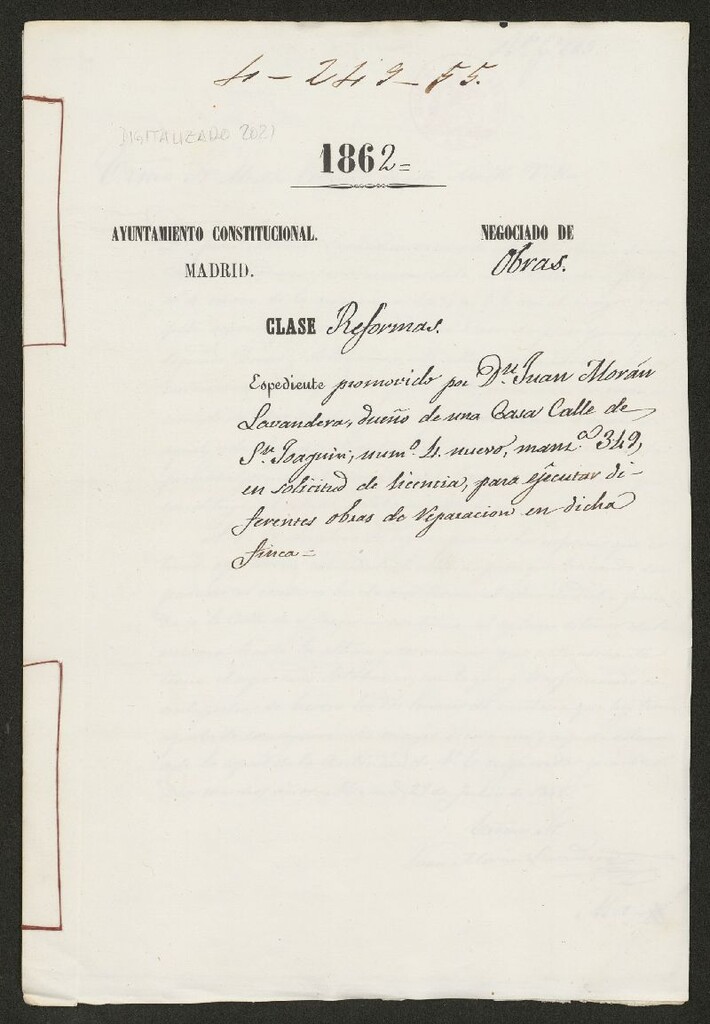 4-249-55.
DIGITALIZADO 2021
1862=
AYUNTAMIENTO CONSTITUCIONAL.
MADRID.
NEGOCIADO DE
Obras.
CLASE Reformas.
Espediente promovido por Dn. Juan Morán
Lavandera, dueño de una Casa Calle de
Sn. Joaquin, numo. 4 nuevo, manza. 349,
en solicitud de licencia, para ejecutar di-
ferentes obras de reparacion en dicha
finca=